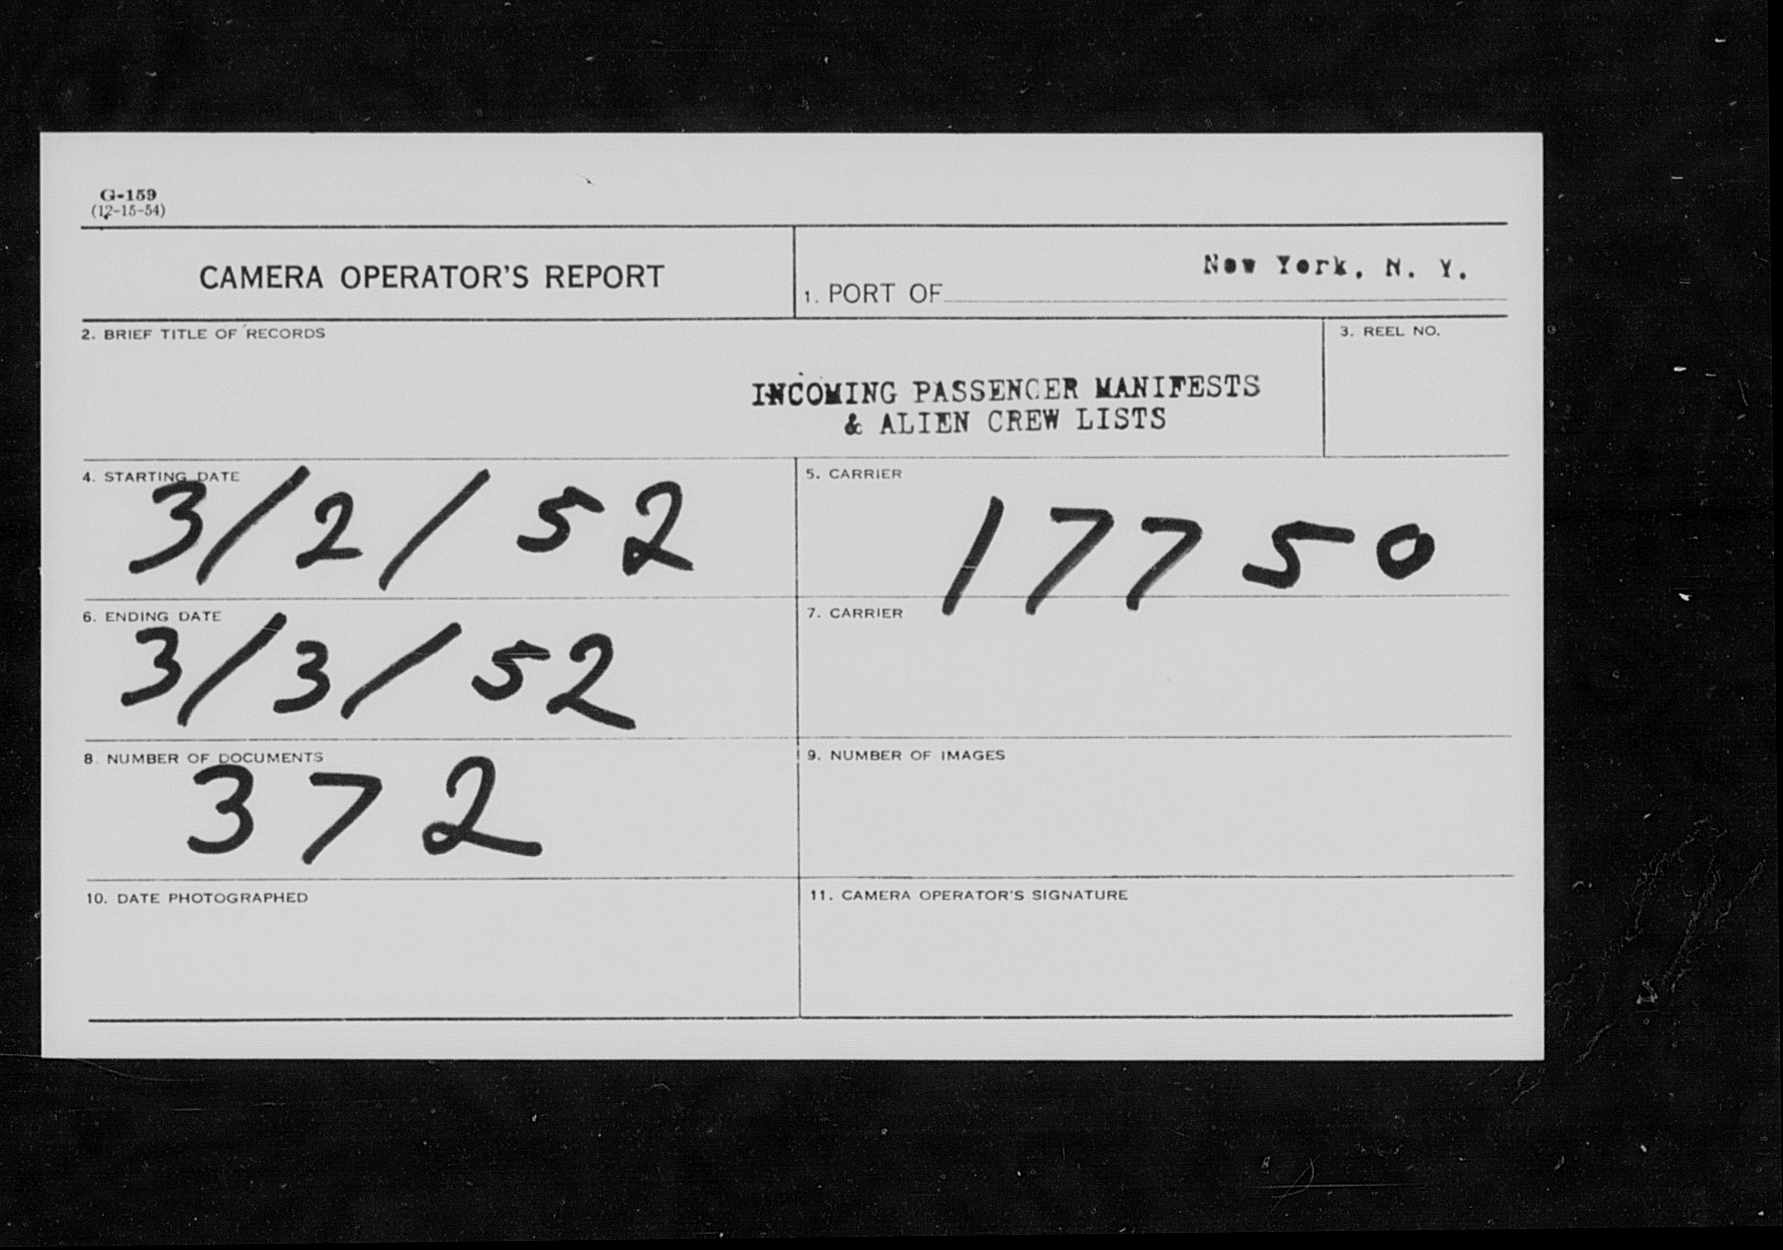 G-159
(12-15-54)
CAMERA OPERATOR'S REPORT
1. PORT OF New York, N. Y.
2. BRIEF TITLE OF RECORDS
3. REEL NO.
INCOMING PASSENGER MANIFESTS
& ALIEN CREW LISTS
4. STARTING DATE
3/2/52
5. CARRIER
17750
6. ENDING DATE
3/3/52
7. CARRIER
8. NUMBER OF DOCUMENTS
372
9. NUMBER OF IMAGES
10. DATE PHOTOGRAPHED
11. CAMERA OPERATOR'S SIGNATURE